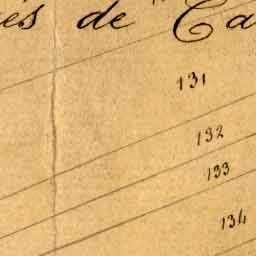 es de Ca
131
132
133
134